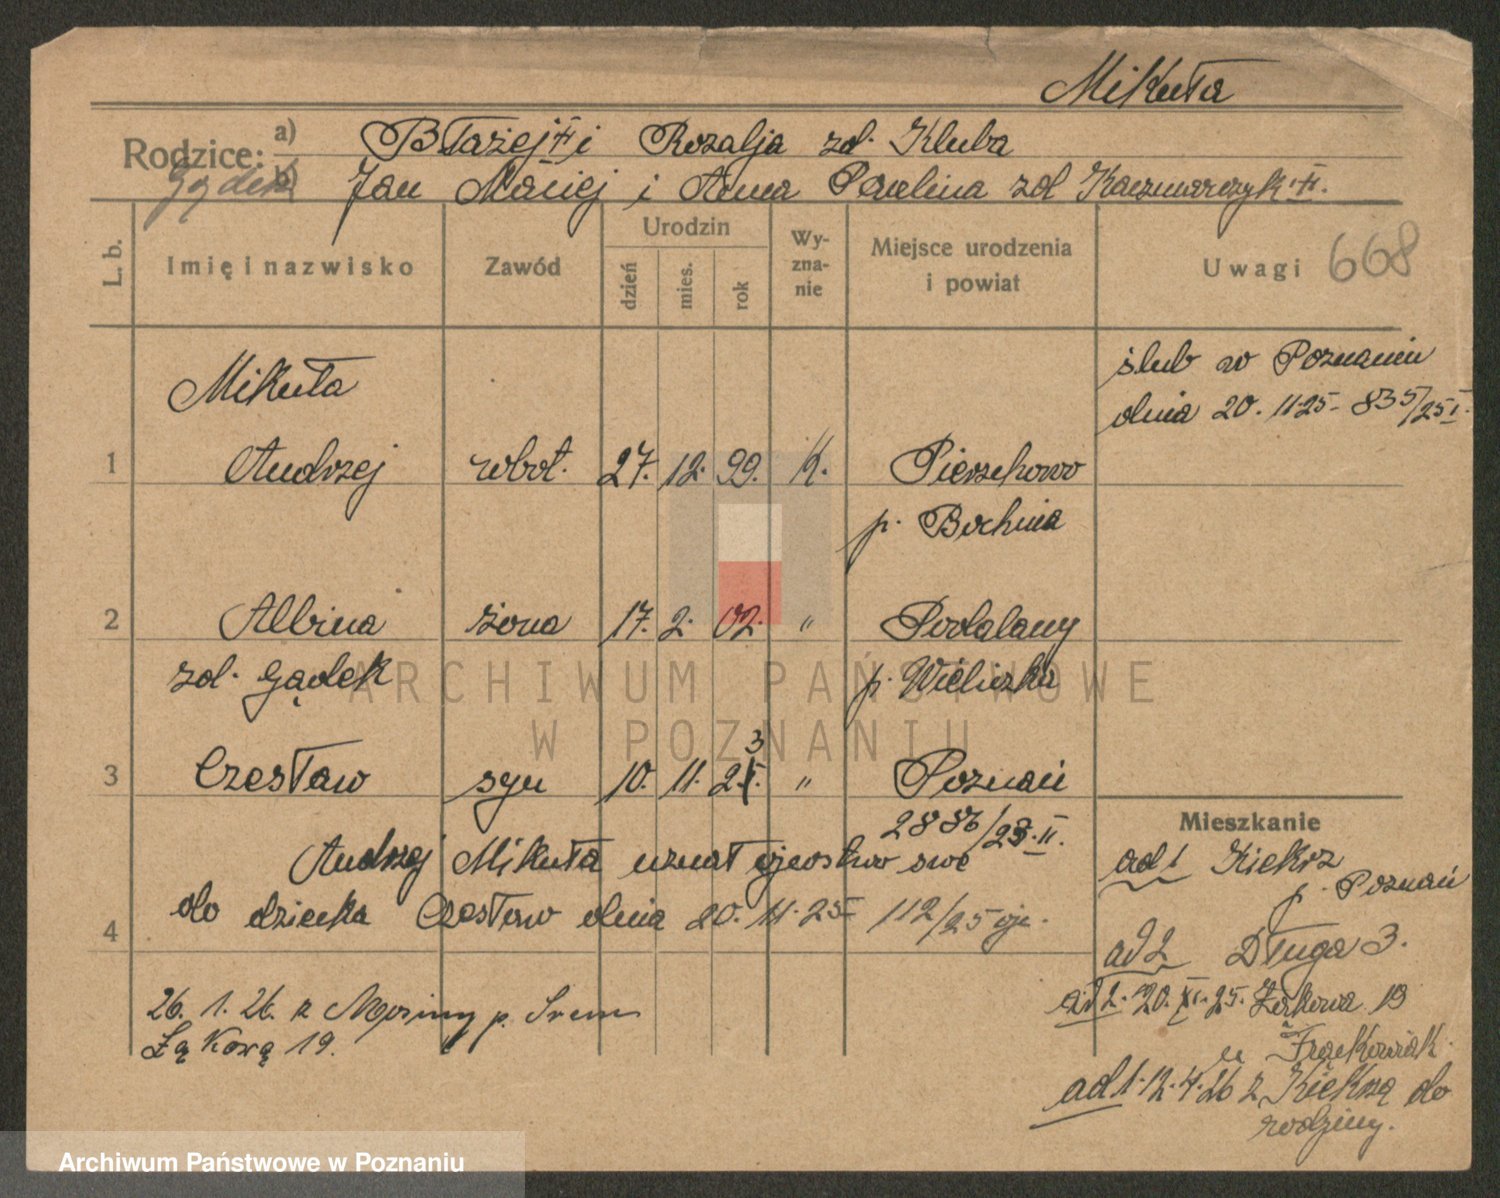 Mikuła
Rodzice: a) Błażej + i Rozalja zd. Kluba
Gądek b) Jan Maciej i Anna Paulina zd Kaczmarczyk +.
L. b. Imię i nazwisko Zawód Urodzin dzień mies. rok Wy-zna-nie Miejsce urodzenia i powiat Uwagi 668
Mikuła ślub w Poznaniu
dnia 20. 11.25. 835/25 I.
1 Andrzej robot. 27. 12. 99. K. Pierzchowo
p. Bochnia
2 Albina żona 17. 2. 02. " Podłalany
zd. Gądek p. Wieliczka
ARCHIWUM PAŃSTWOWE
W POZNANIU
3 Czesław syn 10. 11. 23. " Poznań
2886/23. II.
Mieszkanie
Andrzej Mikuła uznał ojcostwo swe
ad 1 Kiekrz
p. Poznań
4 do dziecka Czesław dnia 20. 11. 25 112/25 oje.
ad 2 Długa 3.
ad 2. 20. XI. 25. Łąkowa 19
u Frąckowiak
26. 1. 26. z p. Śrem
Łąkowa 19.
ad 1. 12. 4. 26 z Kiekrza do
rodziny.
Archiwum Państwowe w Poznaniu